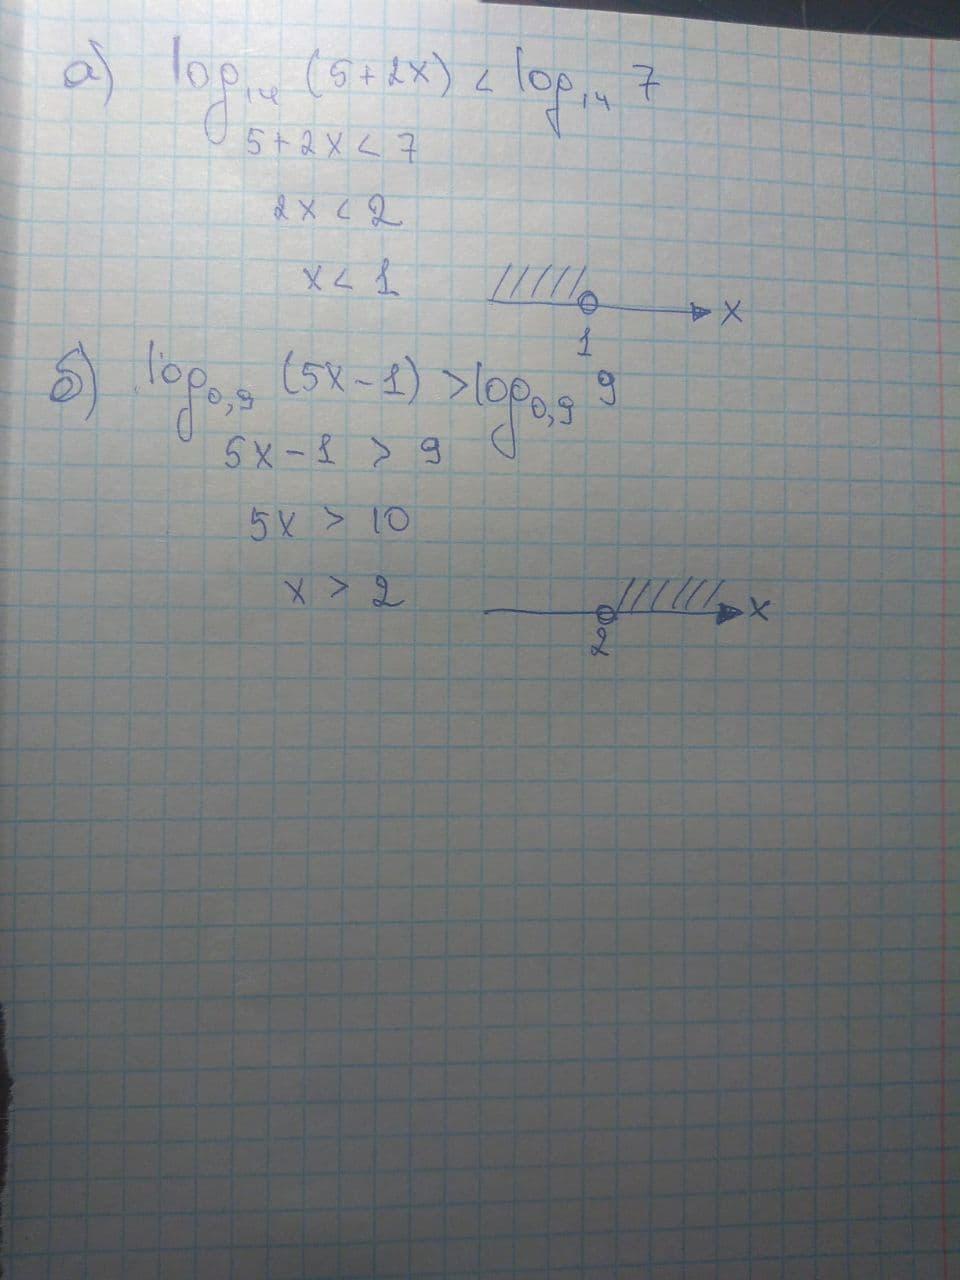 а) log₁₄ (5+2x) < log₁₄ 7
5+2x < 7
2x < 2
x < 1
x
1
б) log₀,₉ (5x-1) > log₀,₉ 9
5x-1 > 9
5x > 10
x > 2
x
2